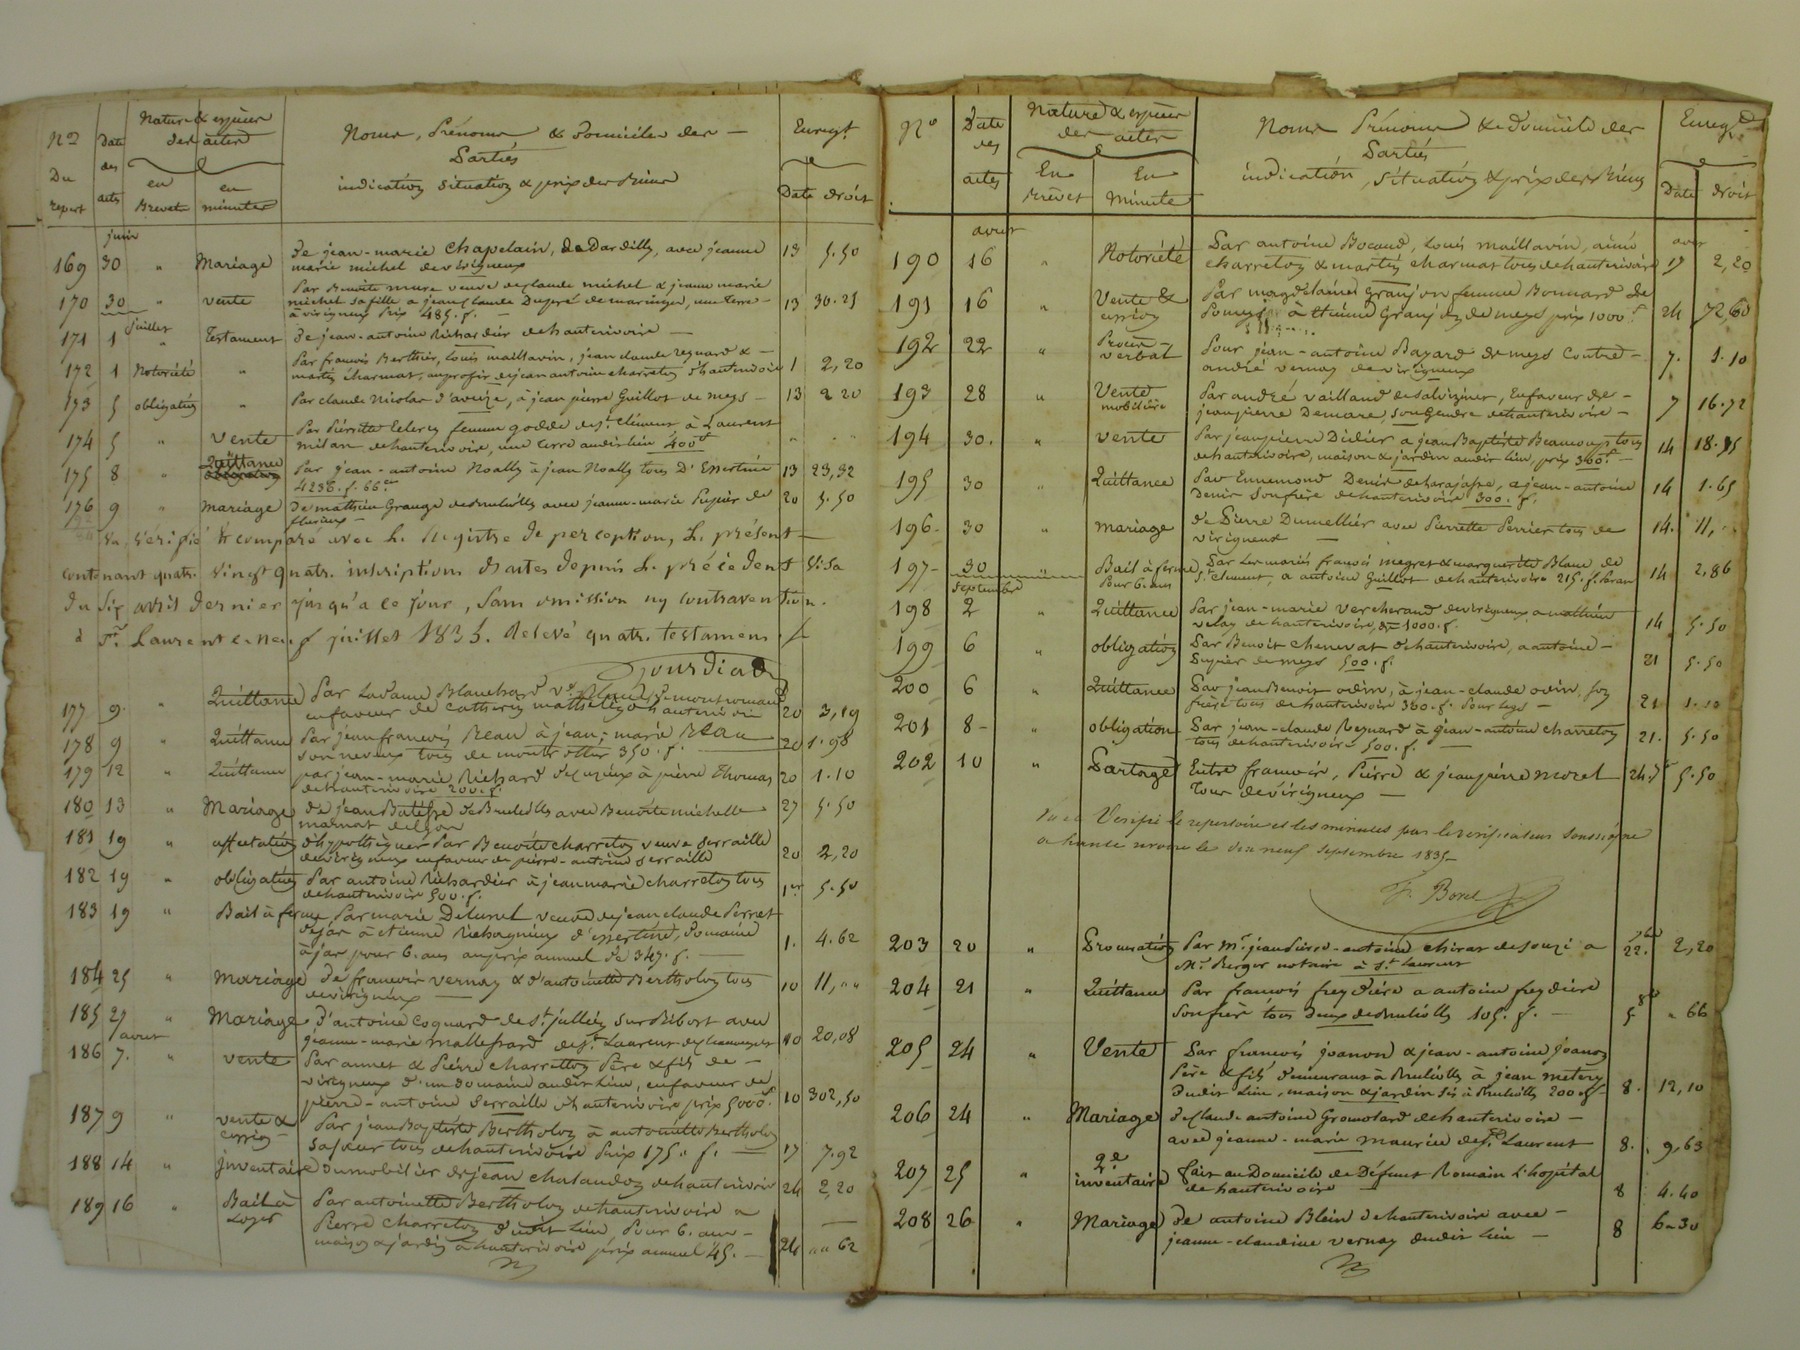 Nos Du repert
Date des actes
Nature & espèces des actes
en Brevet
en minutes
Noms, Prénoms & Domiciles des Parties
indication situation & prix des Biens
Enregt.
Date droit
juin
169 30 " Mariage De jean-marie Chapelain, de Dardilly, avec jeanne 13 5.50
marie michel de virigneux
170 30 " vente Par Benoite mure veuve de claude michel & jeanne marie
michel sa fille a jean claude Dupré de maringes, une terre 13 30.25
à virigneux Prix 485. f.
juillet
171 1 " Testament De jean-antoine Richardier de hauterivoire
172 1 Notoriété " Par francois Berthier, Louis maillavin, jean claude reynard &
martin charmat, au profit de jean antoine charreton d'hauterivoire 1 2,20
173 5 obligation " Par claude Nicolas d'aveize, à jean pierre Guillot de meys 13 2 20
174 5 " vente Par Pierrette femme de st. clément à Laurent
milan de hauterivoire, une terre audit lieu 400 f " "
175 8 " Quittance Par jean-antoine Noally à jean Noally tous D'Essertine 13 23,32
4236. f. 66 c
176 9 " Mariage De mathieu Grange de Brulliolles avec jeanne-marie Pupier de 20 5.50
Vu, vérifié & comparé avec le Registre de perception, le présent
contenant quatre vingt quatre inscriptions d'actes depuis le précédent visa
du six avril dernier jusqu'a ce jour, sans omission ny contravention.
à St. Laurent le neuf juillet 1835. Relevé quatre testamens
177 9 " Quittance Par La dame Blanchard ve
en faveur de Catherine hauterivoire 20 3,19
178 9 " Quittance Par jean francois Réau à jean-marie Réau
son neveux tous de montrottier 350. f. 20 1.98
179 12 " Quittance par jean-marie Richard à pierre Thomas 20 1.10
de hauterivoire 200. f.
180 13 " Mariage de jean de Brulliolles avec Benoite michelle 27 5.50
181 19 " affectation d'hypothèques Par Benoite charreton veuve Serraille
de virigneux en faveur de pierre-antoine Serraille 20 2,20
182 19 " obligation Par antoine Richardier à jean marie charreton tous
de hauterivoire 500. f. 1er 5.50
183 19 " Bail à ferme Par marie veuve de jean claude Pernet
à étienne d'essertine, Domaine
pour 6. ans au prix annuel de 347. f. 1. 4.62
184 25 " Mariage De francois vernay & d'antoinette Bertholon tous
de virigneux 10 11, " "
185 27 " Mariage d'antoine Coquard de St. jullien sur Bibost avec
jeanne-marie de St. Laurent de chamousset 10 20,08
aout
186 7. " vente Par annet & Pierre charretton Père & fils de
virigneux d'un domaine audit Lieu, en faveur de
pierre-antoine Serraille d'hauterivoire prix 5000 f. 10 302,50
187 9 " vente & cession Par jean Baptiste Bertholon à antoinette Bertholon
sa soeur tous de hauterivoire Prix 175 " f. 17 7.92
188 14 " inventaire du mobilier de jean chalandon de hauterivoire 24 2,20
189 16 " Bail à Loyer Par antoinette Bertholon de hauterivoire a
Pierre Charreton dudit lieu Pour 6. ans
maison & jardin a hauterivoire prix annuel 45. 24 " " 62
No
Date des actes
Nature & espèces des actes
En Brevet
En Minute
Noms Prénoms & domicile des Parties
indication, situation & prix des Biens
Enregt.
Date droit
aout aout
190 16 " Notoriété Par antoine Bocaud, Louis maillavin, aimé
charreton & martin charmat tous de hauterivoire 17 2,20
191 16 " Vente & cession Par magdelaine Granjon femme Bonnard de
à étienne Granjon de meys prix 1000 f 24 72,60
192 22 " Procès-verbal Pour jean-antoine Bayard de meys contre
andré vernay de virigneux 7. 1.10
193 28 " Vente mobilière Par andré vaillant de salvizinet, En faveur de
jean pierre Demare, son gendre de hauterivoire 7 16.72
194 30. " vente Par jean pierre Didier a jean Baptiste Beaucoup tous
de hauterivoire, maison & jardin audit lieu, prix 300 f. 14 18.15
195 30 " Quittance Par Ennemond Denis de larajasse, a jean-antoine
Denis son frère de hauterivoire 300. f. 14 1.65
196 30 " mariage de Pierre Dumellier avec Pierrette Perrier tous de
virigneux 14. 11, "
197 30 " Bail à ferme Par Les mariés francois megret & marguerite Blanc de
Pour 6. ans St. clement, a antoine Guillot de hauterivoire 215. f. Par an 14 2,86
septembre
198 2 " Quittance Par jean-marie Vercherand de virigneux a mathieu
de hauterivoire, de 1000. f. 14 5.50
199 6 " obligation Par Benoit Chenevat d'hauterivoire, a antoine
Pupier de meys 500. f. 21 5.50
200 6 " Quittance Par jean Benoit odin, à jean-claude odin, son
frère tous de hauterivoire 300. f. Pour legs 21 1.10
201 8 " obligation Par jean-claude Reynard à jean-antoine charreton
tous de hauterivoire 500. f. 21. 5.50
202 10 " Partage Entre francois, Pierre & jean pierre morel
tous de virigneux 24. 7bre 5.50
Vu et Vérifié le repertoire et les minutes par le verificateur Soussigné
a hauterivoire le dix neuf Septembre 1835
F. Borel
203 20 " Procuration Par Mr. jean Pierre-antoine chiras de Souzi a
Mr. Berger notaire à St. Laurent 22. 7bre 2,20
204 21 " Quittance Par francois freydière a antoine freydière
son frère tous deux de Brulliolles 105. f. 5 8bre " 66
205 24 " Vente Par francois joanon & jean-antoine joanon
Père & fils demeurant à Brulliolles à jean metery
dudit Lieu, maison & jardin sis à Brulliolles 200 f. 8. 12,10
206 24 " Mariage de claude antoine Gromolard de hauterivoire
avec jeanne-marie maurice de St. Laurent 8. 9,63
207 25 " 2e inventaire fait au Domicile de Défunt Romain L'hopital
de hauterivoire 8 4.40
208 26 " Mariage de antoine Blein de hauterivoire avec
jeanne-claudine vernay dudit lieu 8 6-30